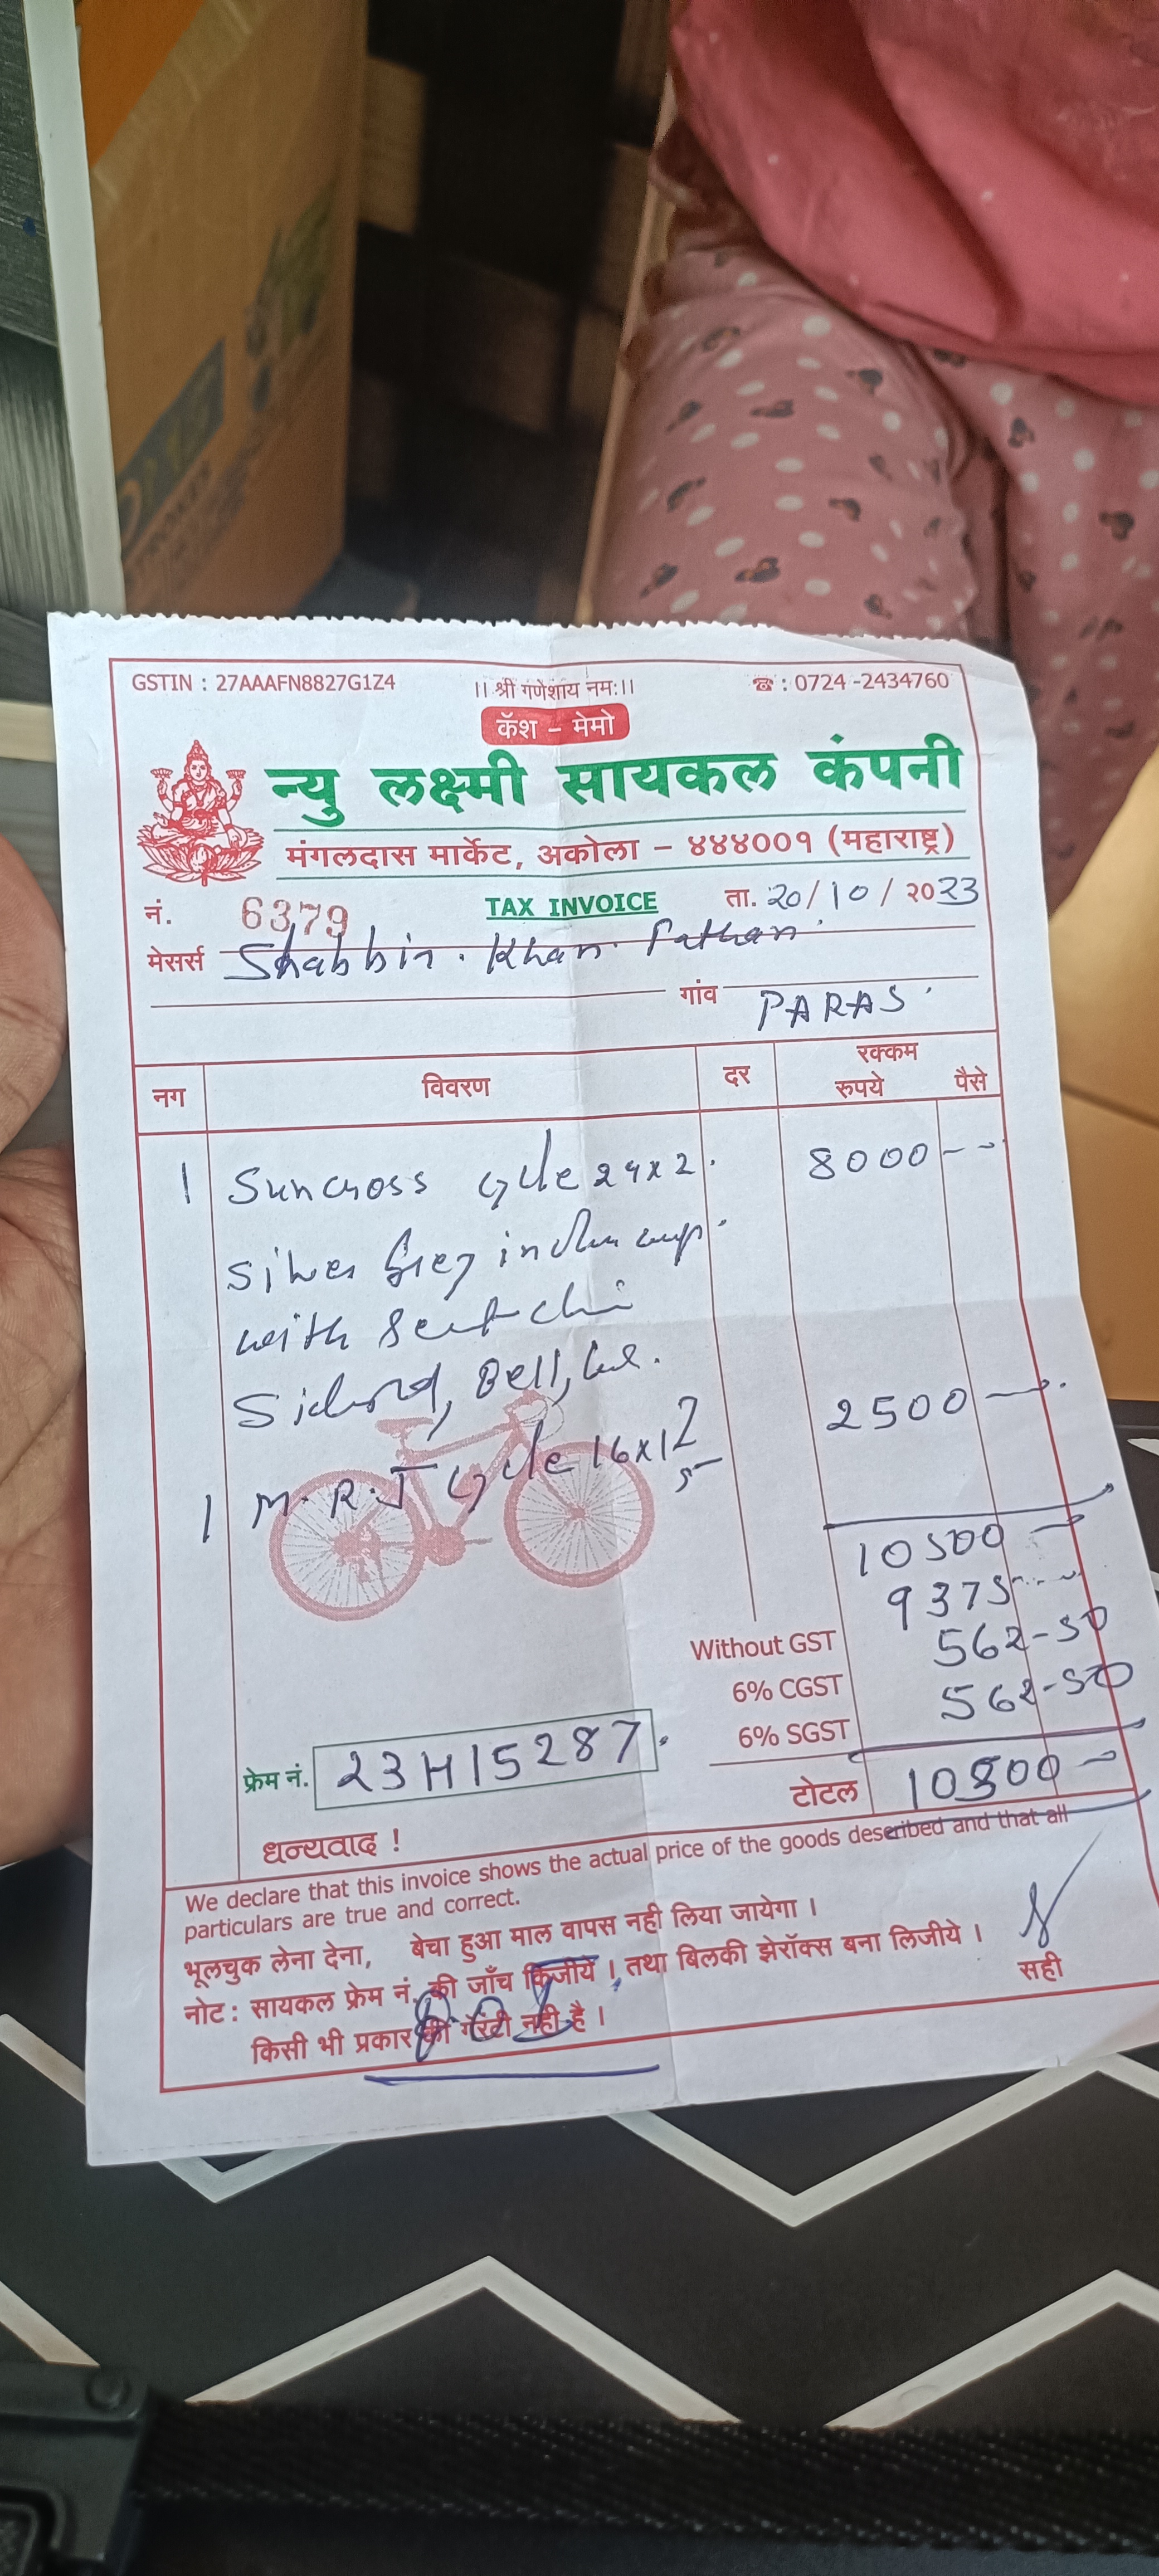 GSTIN : 27AAAFN8827G1Z4
।। श्री गणेशाय नम:।।
☎ : 0724 -2434760
कॅश – मेमो
न्यु लक्ष्मी सायकल कंपनी
मंगलदास मार्केट, अकोला – ४४४००१ (महाराष्ट्र)
नं. 6379
TAX INVOICE
ता. 20/10/ २०23
मेसर्स Shabbir. Khan. Pathan.
गांव PARAS.
नग विवरण दर रक्कम
रुपये पैसे
1 Suncross Cycle 24x2. 8000 --
Silver Grey
with
Bell,
1 M.R.J Cycle 16x1 2500 —
10500 —
9375
Without GST
562-50
6% CGST
562-50
6% SGST
फ्रेम नं. 23H15287.
टोटल 10500 —
धन्यवाद !
We declare that this invoice shows the actual price of the goods described and that all
particulars are true and correct.
भूलचुक लेना देना, बेचा हुआ माल वापस नही लिया जायेगा ।
नोट : सायकल फ्रेम नं. की जाँच किजीये । तथा बिलकी झेरॉक्स बना लिजीये ।
किसी भी प्रकार की गॅरंटी नही है ।
सही